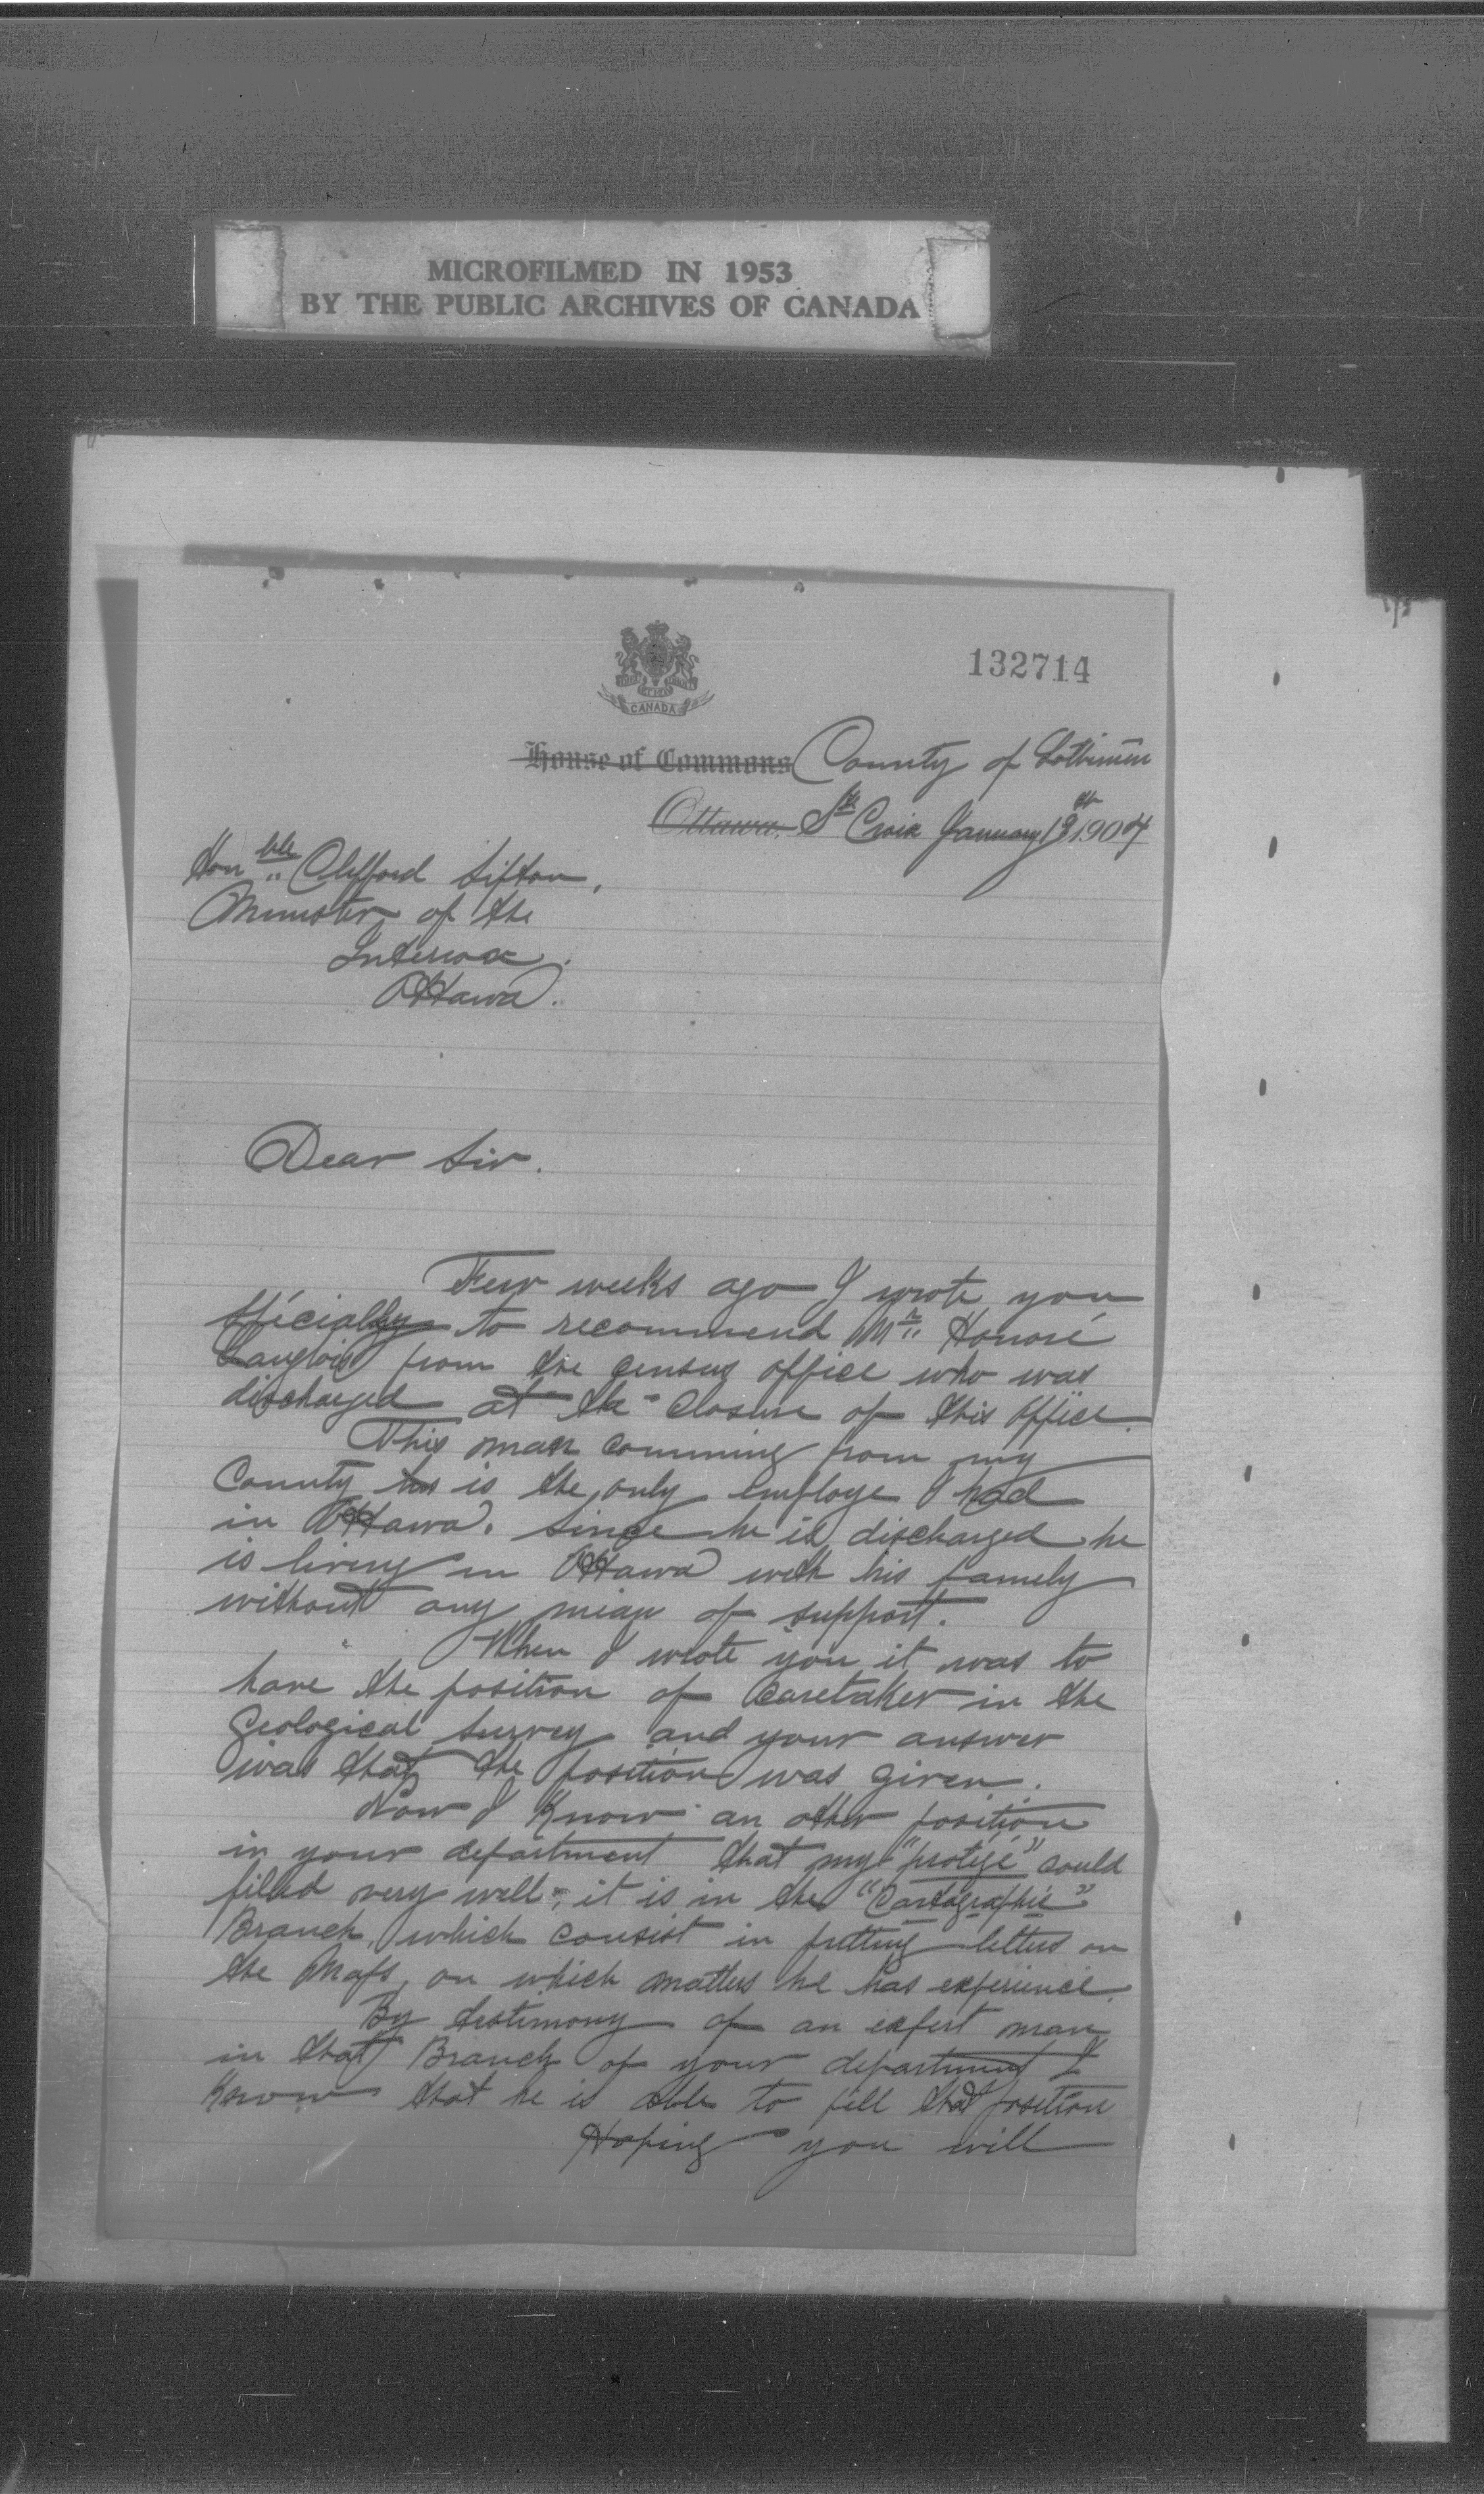 MICROFILMED IN 1953
BY THE PUBLIC ARCHIVES OF CANADA
132714
CANADA
House of Commons County of Lotbiniere
Ottawa, Ste Croix January 13th 1904
Honble Clifford Sifton,
Minister of the
Interior.
Ottawa.
Dear Sir.
Few weeks ago I wrote you
spécially to recommend Mr Honoré
Langlois from the census office who was
discharged at the closure of this office.
This man comming from my
County is the only employe I had
in Ottawa. Since he is discharged he
is living in Ottawa with his family
without any mean of support.
When I wrote you it was to
have the position of caretaker in the
Geological Survey and your answer
was that the position was given.
Now I know an other position
in your department that my "protégé" could
filled very well; it is in the "Cartographic"
Branch, which consist in putting letters on
the Maps, on which matters he has experience.
By testimony of an expert man
in that Branch of your department I
know that he is able to fill that position
Hoping you will